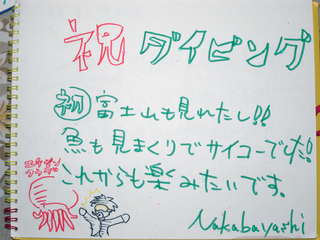 祝ダイビング
初富士山も見れたし!!
魚も見まくりでサイコーでした!
これからも楽みたいです。
Nakabayashi